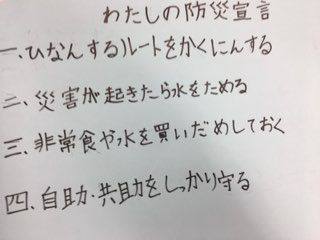 わたしの防災宣言
一、ひなんするルートをかくにんする
二、災害が起きたら水をためる
三、非常食や水を買いだめしておく
四、自助・共助をしっかり守る